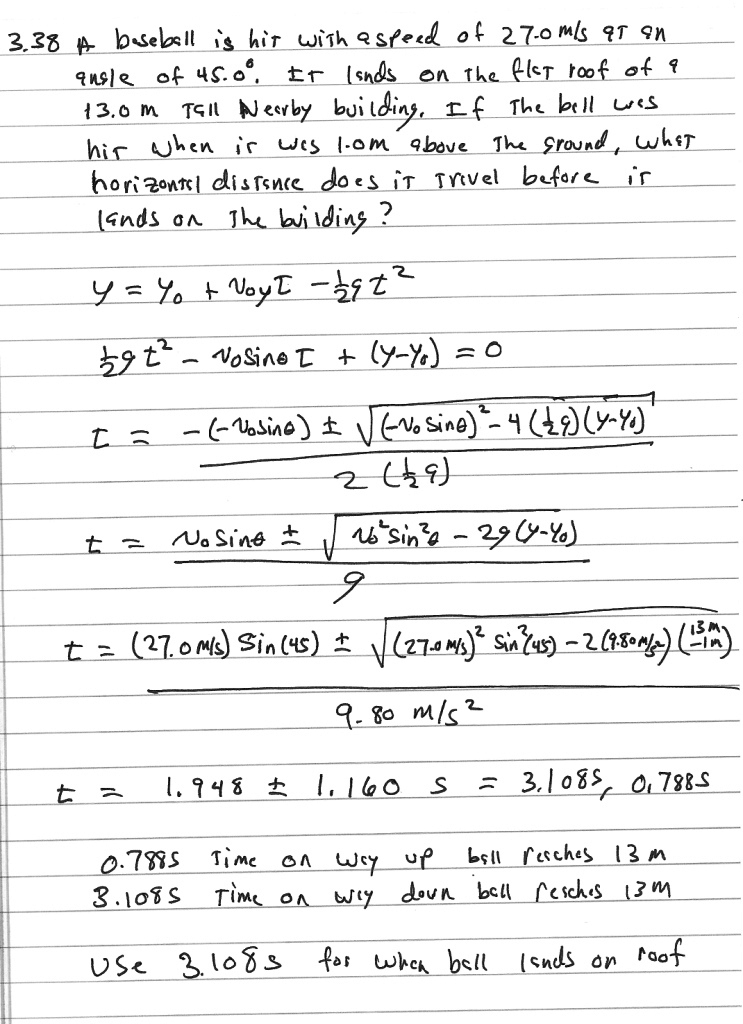 3.38 A baseball is hit with a speed of 27.0 m/s at an
angle of 45.0°. It lands on the flat roof of a
13.0 m Tall Nearby building. If The ball was
hit when it was 1.0m above The ground, what
horizontal distance does it Travel before it
lands on The building?
y = y₀ + v₀yt - ½gt²
½gt² - v₀sinθ t + (y-y₀) = 0
t = -(-v₀sinθ) ± √((-v₀ sinθ)² - 4(½g)(y-y₀)) / 2(½g)
t = v₀ sinθ ± √(v₀² sin²θ - 2g(y-y₀)) / g
t = (27.0 m/s) Sin(45) ± √((27.0 m/s)² Sin²(45) - 2(9.80m/s²)(13m -1m)) / 9.80 m/s²
t = 1.948 ± 1.160 s = 3.108s, 0.788s
0.788s Time on way up ball reaches 13 m
3.108s Time on way down ball reaches 13m
Use 3.108s for when ball lands on roof